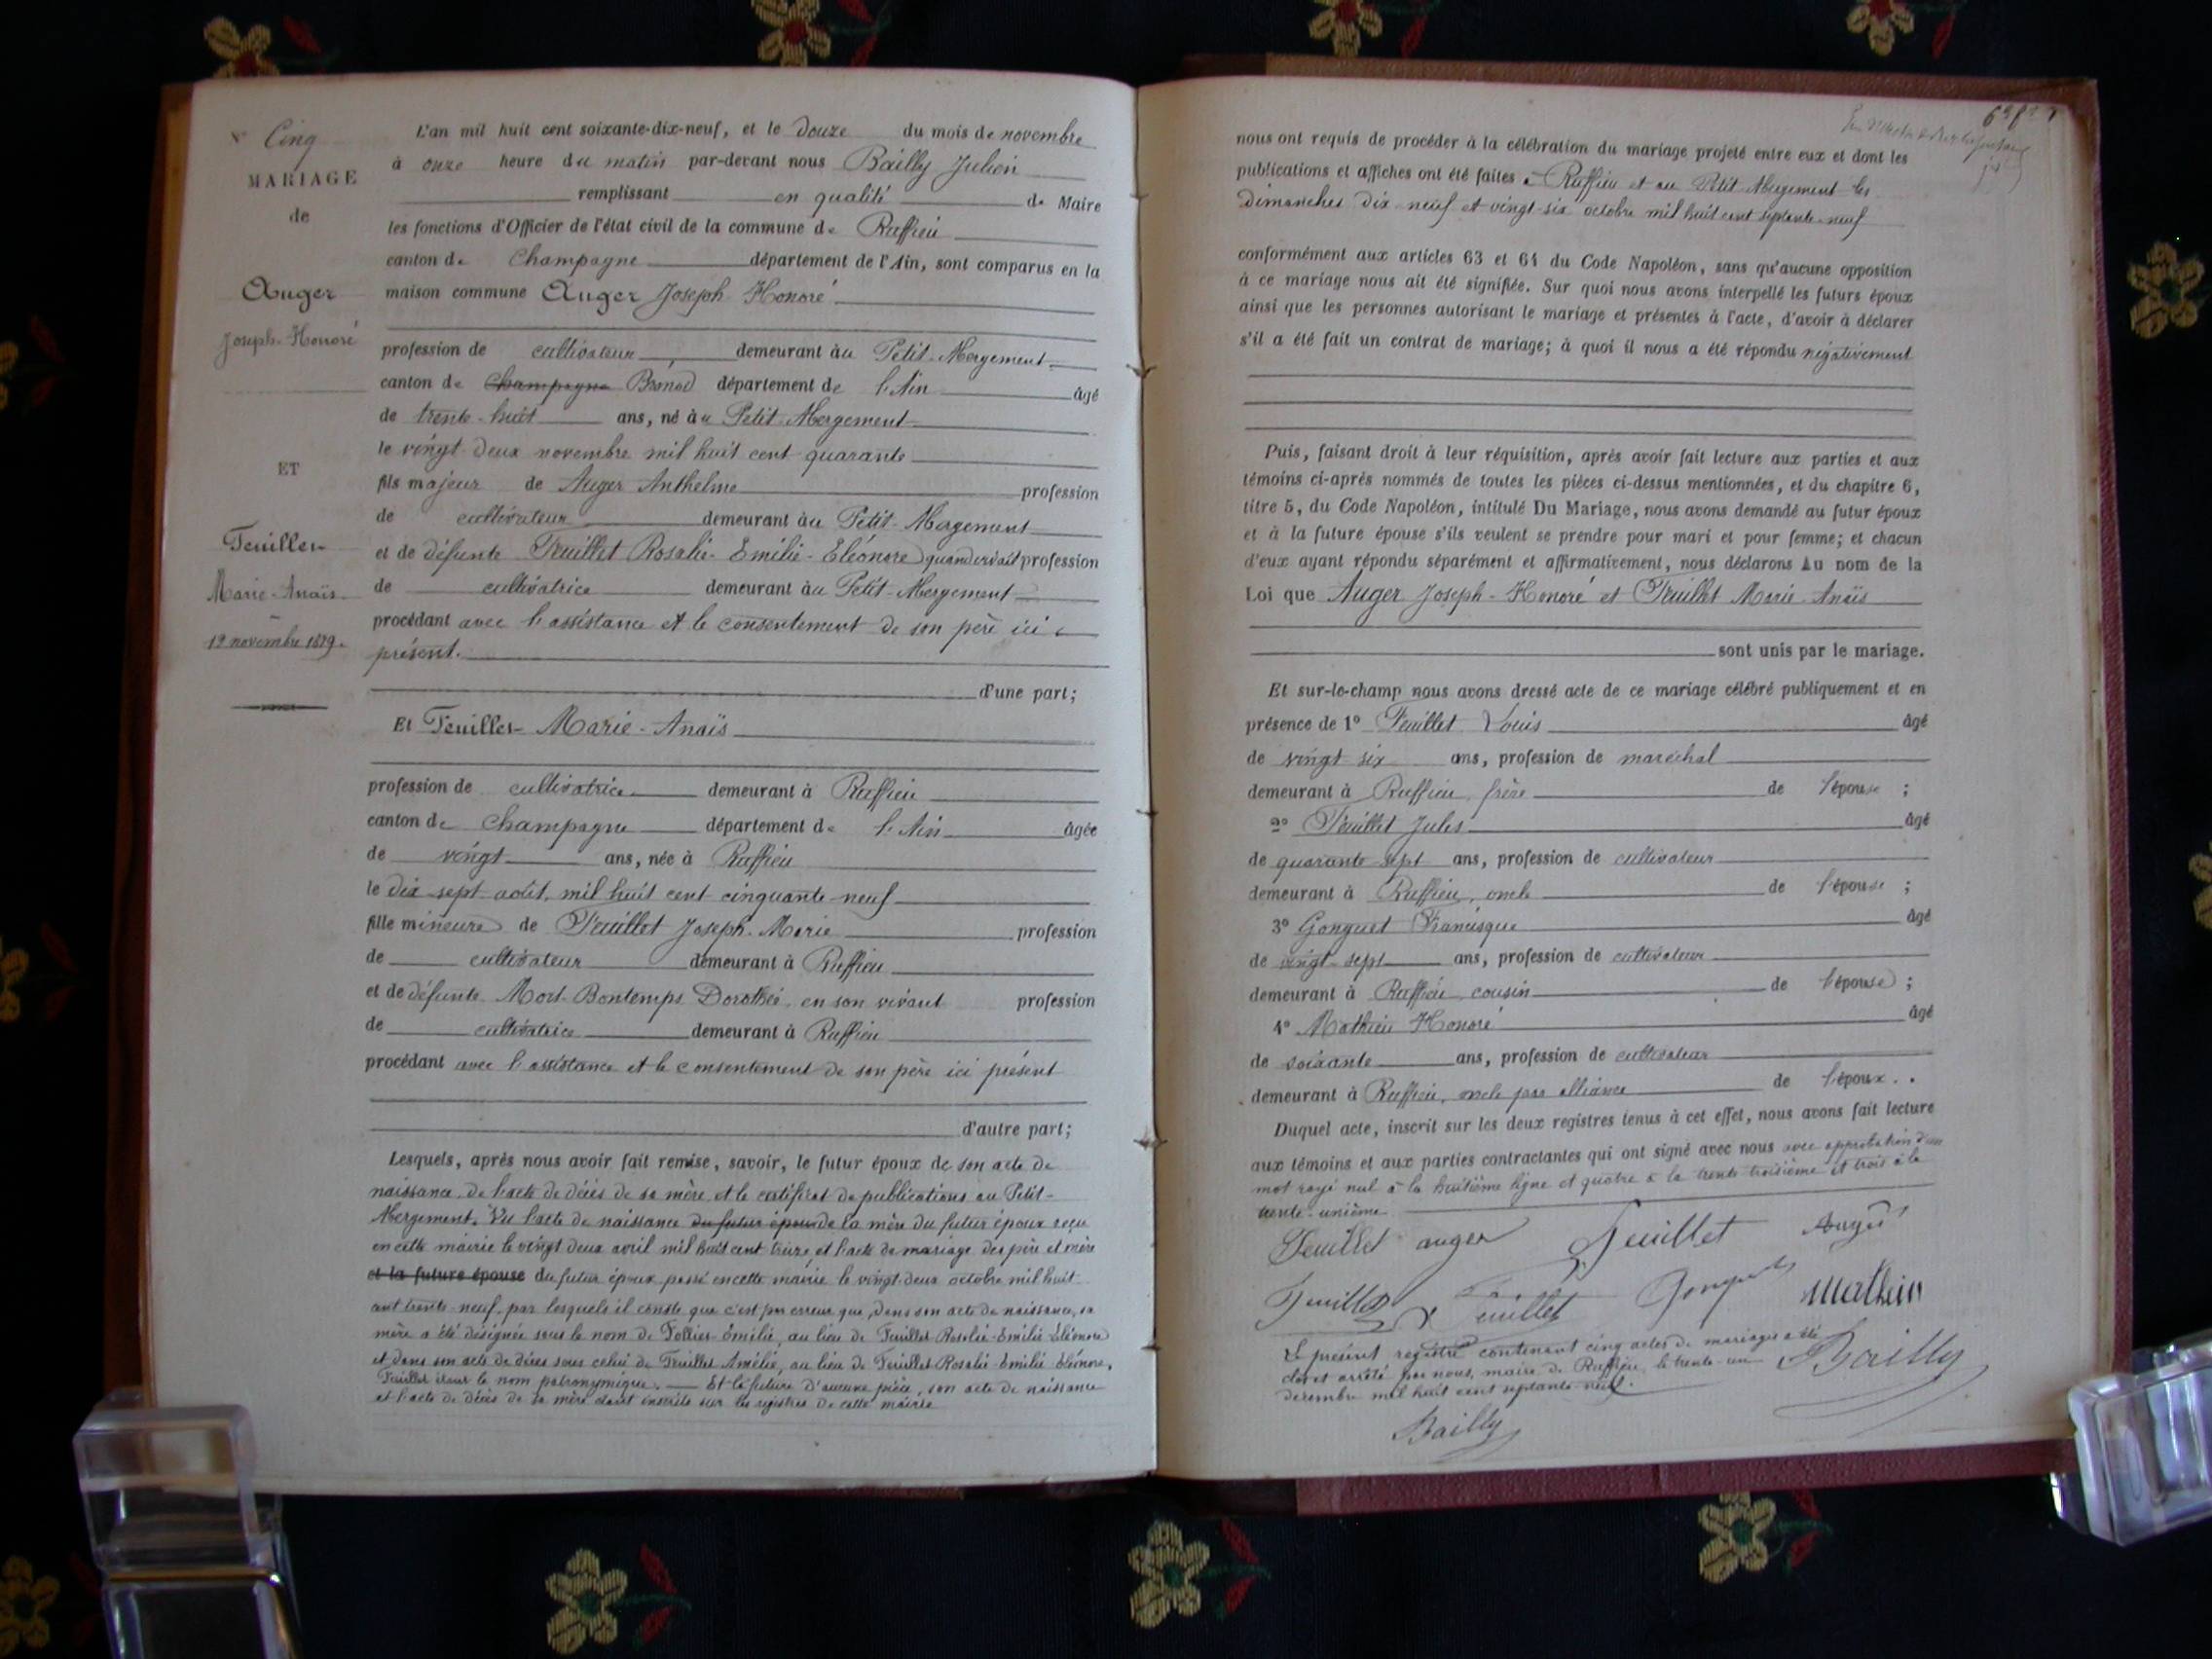 N° Cinq
MARIAGE
de
Auger
Joseph-Honoré
ET
Feuillet
Marie-Anaïs
12 novembre 1879.
L'an mil huit cent soixante-dix-neuf, et le douze du mois de novembre
à onze heure du matin par-devant nous Bailly Julien
remplissant en qualité de Maire
les fonctions d'Officier de l'état civil de la commune de Ruffieu
canton de Champagne département de l'Ain, sont comparus en la
maison commune Auger Joseph-Honoré
profession de cultivateur, demeurant àu Petit-Abergement
canton de Champagne Brénod département de l'Ain âgé
de trente-huit ans, né àu Petit-Abergement
le vingt deux novembre mil huit cent quarante
fils majeur de Auger Anthelme profession
de cultivateur demeurant àu Petit-Abergement
et de défunte Feuillet Rosalie-Emilie-Eléonore quand vivait profession
de cultivatrice demeurant àu Petit-Abergement
procédant avec l'assistance et le consentement de son père ici
présent.
d'une part;
Et Feuillet Marie-Anaïs
profession de cultivatrice demeurant à Ruffieu
canton de Champagne département de l'Ain âgée
de vingt ans, née à Ruffieu
le dix-sept août mil huit cent cinquante-neuf
fille mineure de Feuillet Joseph-Marie profession
de cultivateur demeurant à Ruffieu
et de défunte Mort-Bontemps Dorothée en son vivant profession
de cultivatrice demeurant à Ruffieu
procédant avec l'assistance et le consentement de son père ici présent
d'autre part;
Lesquels, après nous avoir fait remise, savoir, le futur époux de son acte de
naissance, de l'acte de décès de sa mère et le certificat de publications au Petit-
Abergement. Vu l'acte de naissance du futur époux de la mère du futur époux reçu
en cette mairie le vingt deux avril mil huit cent treize, et l'acte de mariage des père et mère
et la future épouse du futur époux passé en cette mairie le vingt-deux octobre mil huit
cent trente-neuf, par lesquels il conste que c'est par erreur que, dans son acte de naissance, sa
mère a été désignée sous le nom de Follier Emilie, au lieu de Feuillet Rosalie-Emilie-Eléonore
et dans son acte de décès sous celui de Feuillet Amélie, au lieu de Feuillet Rosalie-Emilie-Eléonore,
Feuillet étant le nom patronymique. — Et la future d'aucune pièce, son acte de naissance
et l'acte de décès de sa mère étant inscrits sur les registres de cette mairie
nous ont requis de procéder à la célébration du mariage projeté entre eux et dont les
publications et affiches ont été faites à Ruffieu et au Petit-Abergement les
dimanches dix-neuf et vingt-six octobre mil huit cent septante-neuf
conformément aux articles 63 et 64 du Code Napoléon, sans qu'aucune opposition
à ce mariage nous ait été signifiée. Sur quoi nous avons interpellé les futurs époux
ainsi que les personnes autorisant le mariage et présentes à l'acte, d'avoir à déclarer
s'il a été fait un contrat de mariage; à quoi il nous a été répondu négativement
Puis, faisant droit à leur réquisition, après avoir fait lecture aux parties et aux
témoins ci-après nommés de toutes les pièces ci-dessus mentionnées, et du chapitre 6,
titre 5, du Code Napoléon, intitulé Du Mariage, nous avons demandé au futur époux
et à la future épouse s'ils veulent se prendre pour mari et pour femme; et chacun
d'eux ayant répondu séparément et affirmativement, nous déclarons Au nom de la
Loi que Auger Joseph-Honoré et Feuillet Marie-Anaïs
sont unis par le mariage.
Et sur-le-champ nous avons dressé acte de ce mariage célébré publiquement et en
présence de 1° Feuillet Louis âgé
de vingt six ans, profession de maréchal
demeurant à Ruffieu, frère de l'épouse ;
2° Feuillet Jules âgé
de quarante-sept ans, profession de cultivateur
demeurant à Ruffieu, oncle de l'épouse ;
3° Gonguet Francisque âgé
de vingt-sept ans, profession de cultivateur
demeurant à Ruffieu, cousin de l'épouse ;
4° Mathieu Honoré âgé
de soixante ans, profession de cultivateur
demeurant à Ruffieu, oncle par alliance de l'époux.
Duquel acte, inscrit sur les deux registres tenus à cet effet, nous avons fait lecture
aux témoins et aux parties contractantes qui ont signé avec nous avec approbation d'un
mot rayé nul à la huitième ligne et quatre à la trente troisième et trois à la
trente-unième
Feuillet auger Feuillet Auger
Feuillet Feuillet Gonguet Mathieu
Le présent registre contenant cinq actes de mariages a été
clos et arrêté par nous, maire de Ruffieu, le trente-un Bailly
décembre mil huit cent septante-neuf.
Bailly